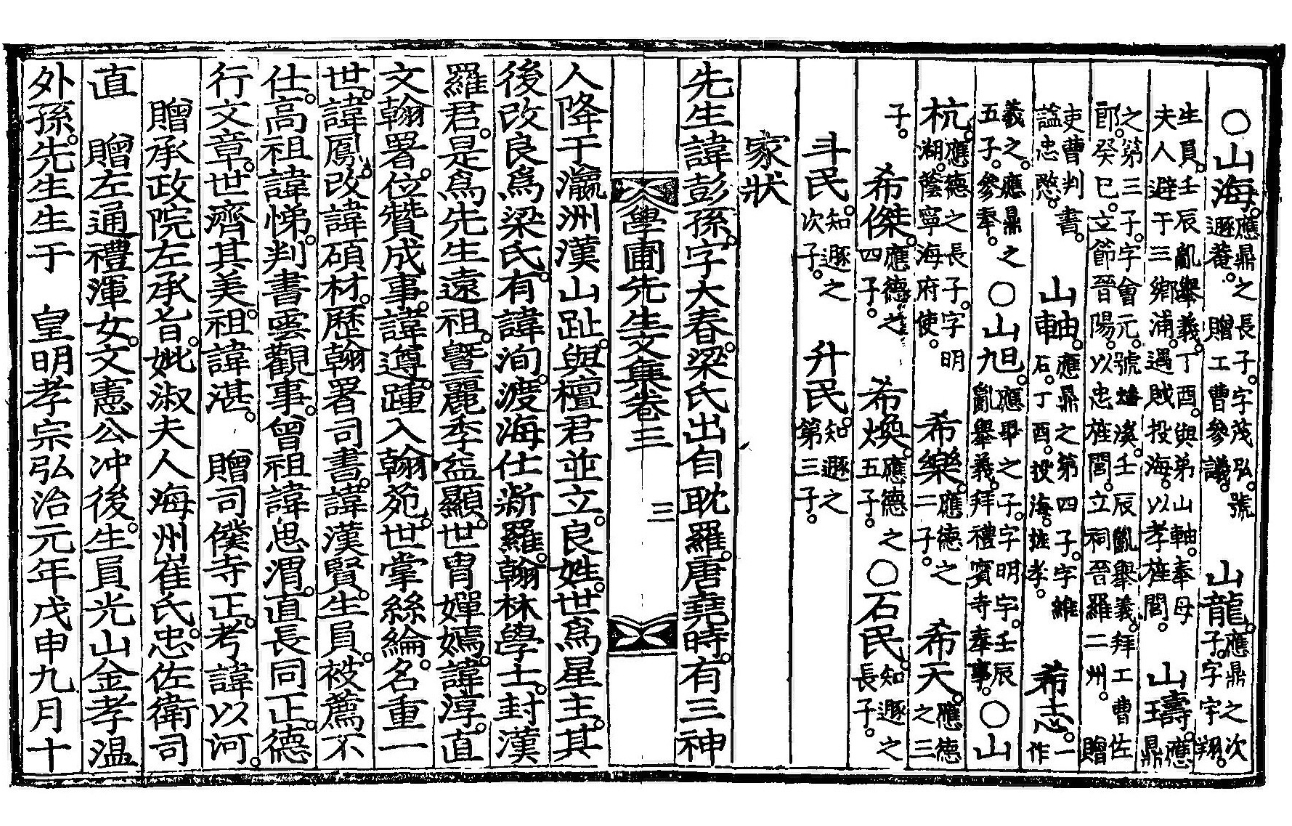 ○山海。應鼎之長子。字茂弘。號遯菴。贈工曹參議。山龍。應鼎之次子。字字翔。
生員。壬辰亂擧義。丁酉。與弟山軸。奉母夫人避于三鄕浦。遇賊投海。以孝旌閭。山璹。應鼎
之第三子。字會元。號蟠溪。壬辰亂擧義。拜工曹佐郎。癸巳。立節晉陽。以忠旌閭。立祠晉羅二州。贈
吏曹判書。諡忠愍。山軸。應鼎之第四子。字維石。丁酉。投海。旌孝。希志。一作
義之。應鼎之五子。參奉。○山旭。應畢之子。字明宇。壬辰亂擧義。拜禮賓寺奉事。○山
杭。應德之長子。字明湖。蔭寧海府使。希樂。應德之二子。希天。應德之三
子。希傑。應德之四子。希煥。應德之五子。○石民。知遯之長子。
斗民。知遯之次子。升民。知遯之第三子。
家狀
先生諱彭孫。字大春。梁氏出自耽羅。唐堯時。有三神
學圃先生文集卷三 三
人降于瀛洲漢山趾。與檀君並立。良姓。世爲星主。其
後改良爲梁氏。有諱洵。渡海仕新羅。翰林學士。封漢
羅君。是爲先生遠祖。曁麗季益顯。世胄嬋嫣。諱淳。直
文翰署。位贊成事。諱遵。踵入翰苑。世掌絲綸。名重一
世。諱鳳。改諱碩材。歷翰署司書。諱漢賢。生員。被薦不
仕。高祖諱悌。判書雲觀事。曾祖諱思渭。直長同正。德
行文章。世濟其美。祖諱湛。贈司僕寺正。考諱以河。
贈承政院左承旨。妣淑夫人海州崔氏。忠佐衛司
直贈左通禮渾女。文憲公冲後。生員光山金孝溫
外孫。先生生于皇明孝宗弘治元年戊申九月十